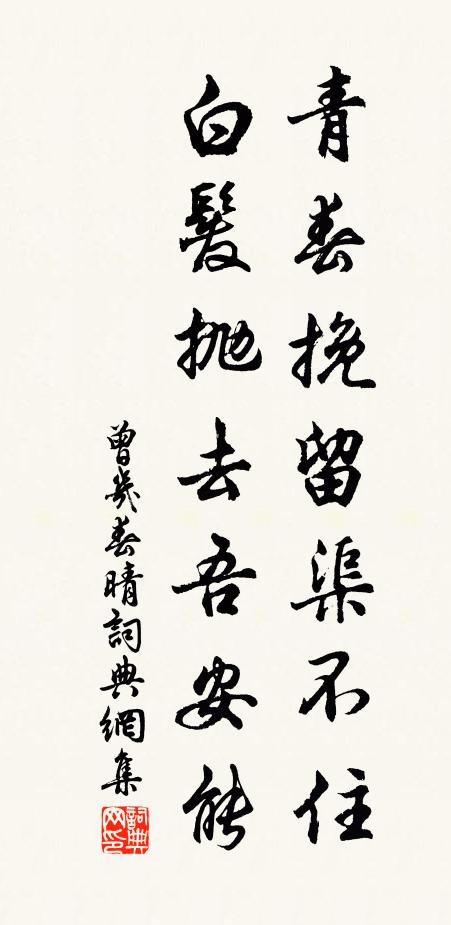 青春挽留渠不住
白髮拋去吾安能
曾幾春晴詞典網集
詞典網印